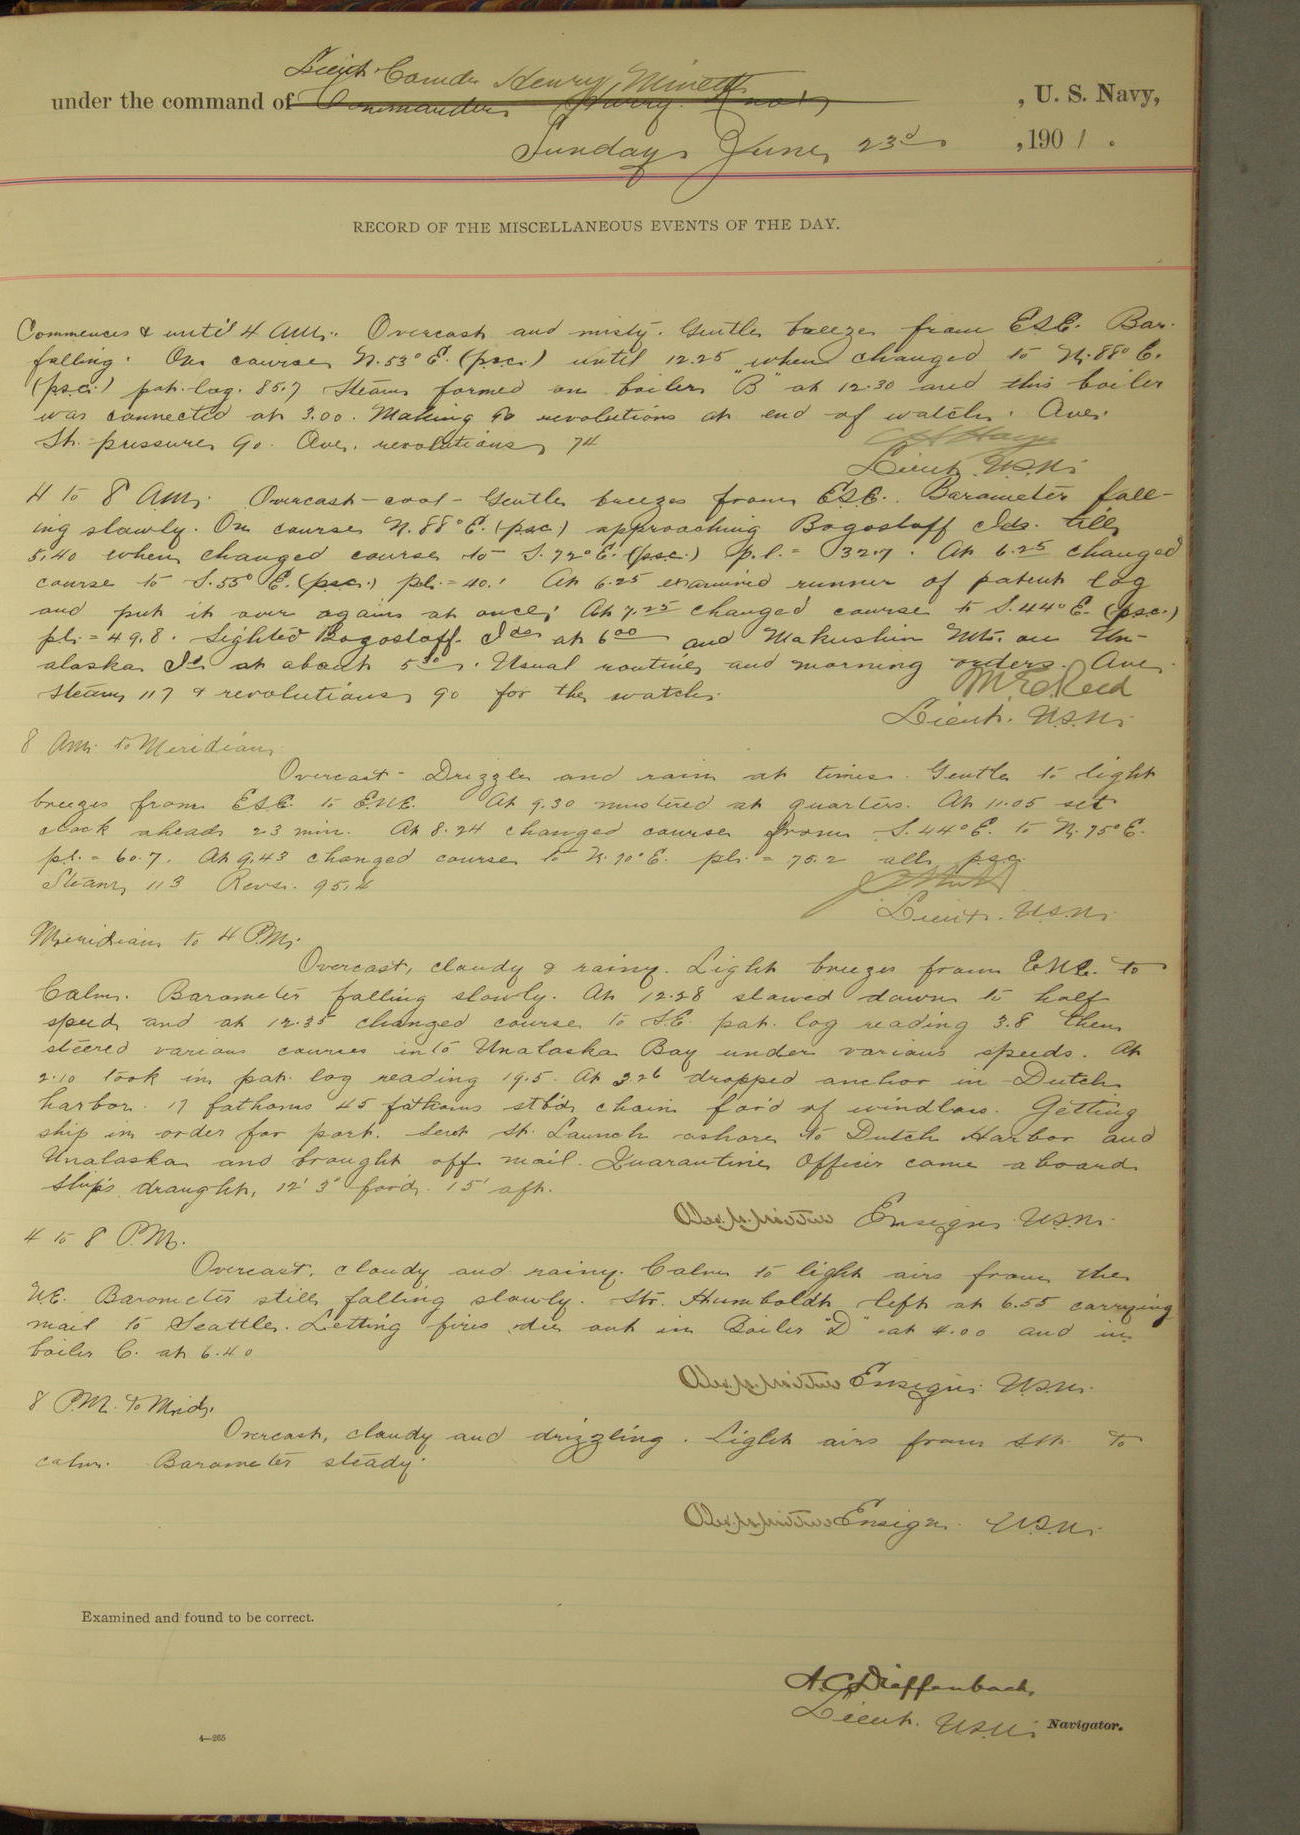 Lieut. Comdr Henry Minett
under the command of Commander Harry Knox, U. S. Navy,
Sunday June 23d, 1901.
RECORD OF THE MISCELLANEOUS EVENTS OF THE DAY.
Commences & until 4 A.M.. Overcast and misty. Gentle breeze from ESE. Bar.
falling. On course N. 53° E. (p.s.c.) until 12.25 when changed to N. 88° E.
(p.s.c.) pat. log. 85.7 Steam formed on boiler "B" at 12.30 and this boiler
was connected at 3.00. Making 90 revolutions at end of watch. Ave.
St. pressure 90. Ave. revolutions 74
Lieut. U.S.N.
4 to 8 A.M. Overcast - cool - Gentle breezes from ESE. Barometer fall-
ing slowly. On course N. 88° E. (p.s.c.) approaching Bogosloff Ids. till
5.40 when changed course to S. 72° E. (p.s.c.) p.l. = 32.7. At 6.25 changed
course to S. 55° E. (p.s.c.) p.l. = 40.1 At 6.25 examined runner of patent log
and put it over again at once; At 7.25 changed course to S. 44° E. (p.s.c.)
p.l. = 49.8. Sighted Bogosloff Ids at 6 00 and Makushin Mt. on Un-
alaska Id at about 5 30. Usual routine and morning orders. Ave.
Steam 117 & revolutions 90 for the watch.
Lieut. U.S.N.
8 A.M. to Meridian
Overcast - Drizzle and rain at times. Gentle to light
breezes from ESE. to ENE. At 9.30 mustered at quarters. At 11.05 set
clock ahead 23 min. At 8.24 changed course from S. 44° E. to N. 75° E.
p.l. = 60.7. At 9.43 changed course to N. 70° E. p.l. = 75.2 all p.s.c.
Steam 113 Revs. 95.4
Lieut. U.S.N.
Meridian to 4 P.M.
Overcast, cloudy & rainy. Light breezes from ENE. to
Calm. Barometer falling slowly. At 12.28 slowed down to half
speed and at 12.35 changed course to SE. pat. log reading 3.8 then
steered various courses into Unalaska Bay under various speeds. At
2.10 took in pat. log reading 19.5. At 3.26 dropped anchor in Dutch
harbor. 17 fathoms 45 fathoms stb'd chain for'd of windlass. Getting
ship in order for port. Sent St. Launch ashore to Dutch Harbor and
Unalaska and brought off mail. Quarantine Officer came aboard
Ship's draught, 12' 3" for'd. 15' aft.
Ensign U.S.N.
4 to 8 P.M.
Overcast, cloudy and rainy. Calm to light airs from the
NE. Barometer still falling slowly. Str. Humboldt left at 6.55 carrying
mail to Seattle. Letting fires die out in Boiler "D" at 4.00 and in
boiler C. at 6.40
Ensign U.S.N.
8 P.M. to Mid.
Overcast, cloudy and drizzling. Light airs from Sth. to
calm. Barometer steady.
Ensign U.S.N.
Examined and found to be correct.
A. C. Dieffenbach,
Lieut. U.S.N. Navigator.
4—265